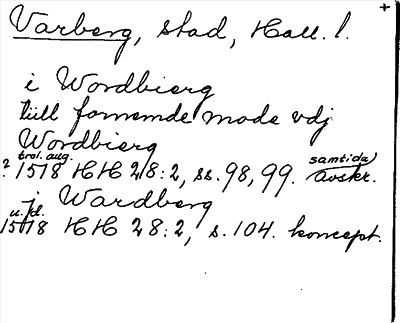 +
Varberg, stad, Hall. l.
i Wordbierg
tiill fornemde mode vdj
Wordbierg
trol. aug. samtida
? 1518 HH 28:2, ss. 98, 99. avskr.
i Wardberg
u. d.
1518 HH 28:2, s. 104. koncept.